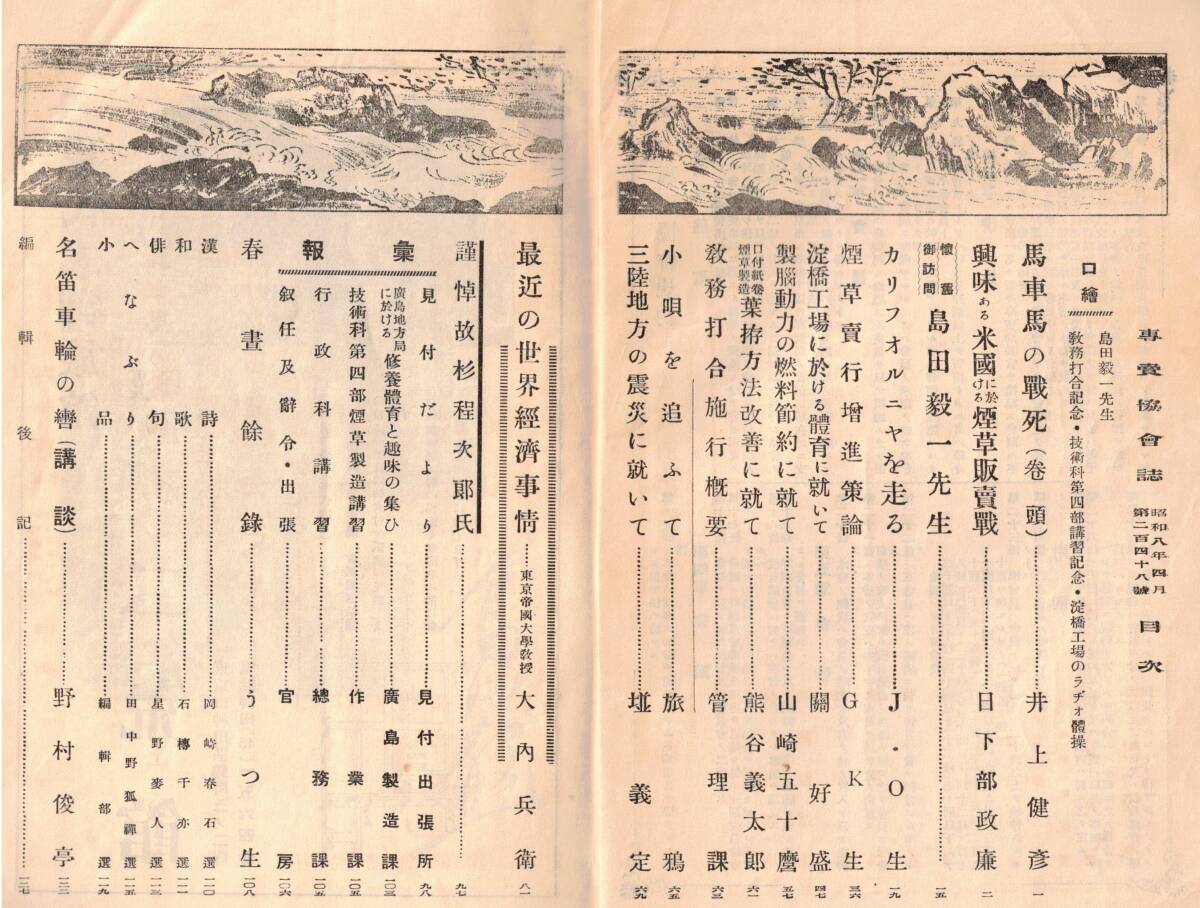 專賣協會誌 昭和八年四月 第二百四十八號 目次
口繪 島田毅一先生
敎務打合記念・技術科第四部講習記念・淀橋工場のラヂオ體操
馬車馬の戰死(卷頭)……井上健彥 一
興味ある米國に於ける煙草販賣戰……日下部政廉 二
懷舊御訪問 島田毅一先生……一五
カリフオルニヤを走る……J・O生 一九
煙草賣行增進策論……GK生 三六
淀橋工場に於ける體育に就いて……關好盛 四七
製腦動力の燃料節約に就て……山崎五十麿 五七
口付紙卷煙草製造葉拵方法改善に就て……熊谷義太郎 六一
敎務打合施行槪要……管理課 六三
小唄を追ふて……旅鴉 六五
三陸地方の震災に就いて……埖義定 六九
最近の世界經濟事情……東京帝國大學敎授 大內兵衛 八一
謹悼故杉程次郞氏……九七
彙報
見付だより……見付出張所 九八
廣島地方局に於ける修養體育と趣味の集ひ……廣島製造課 一〇三
技術科第四部煙草製造講習……作業課 一〇五
行政科講習……總務課 一〇五
叙任及辭令・出張……官房 一〇六
春晝餘錄……うつ生 一〇八
漢詩……岡崎春石選 一一〇
和歌……石榑千亦選 一一一
俳句……星野麥人選 一一三
へなぶり……田中野狐禪選 一一五
小品……編輯部選 一一九
名笛車輪の轡(講談)……野村俊亭 一二三
編輯後記……一二七